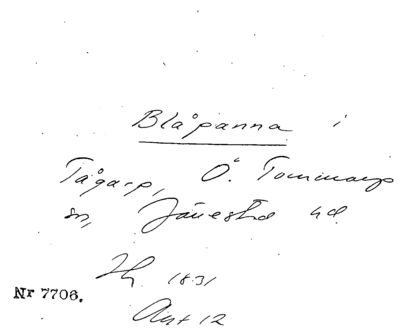 Blåpanna i
Tågarp, Ö. Tommarp
sn, Järrestad hd
1831
Nr 7706.
12